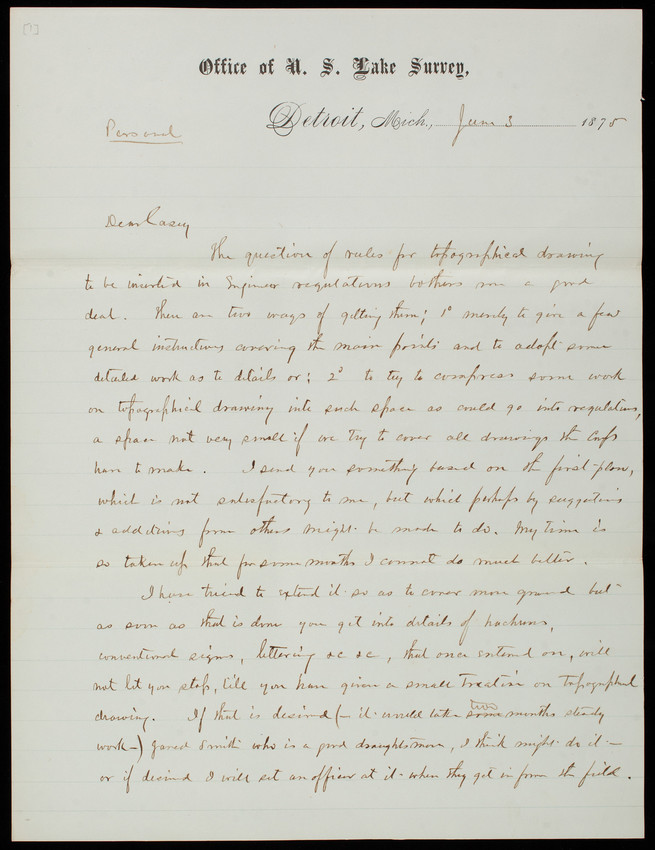 [1]
Office of U. S. Lake Survey,
Detroit, Mich., June 3 1875
Personal
Dear Casey
The question of rules for topographical drawing
to be inserted in Engineer regulations bothers me a good
deal. There are two ways of getting them; 1° merely to give a few
general instructions covering the main points and to adopt some
detailed work as to details or; 2° to try to compress some work
on topographical drawing into such space as could go into regulations,
a space not very small if we try to cover all drawings the Corps
have to make. I send you something based on the first plan,
which is not satisfactory to me, but which perhaps by suggestions
& additions from others might be made to do. My time is
so taken up that for some months I cannot do much better.
I have tried to extend it so as to cover more ground but
as soon as that is done you get into details of hachures,
conventional signs, lettering &c &c, that once entered on, will
not let you stop, till you have given a small treatise on topographical
drawing. If that is desired (- it would take some two months steady
work -) Jared Smith who is a good draughtsman, I think might do it -
or if desired I will set an officer at it when they get in from the field.